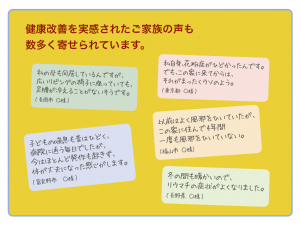 健康改善を実感されたご家族の声も
数多く寄せられています。
私の母も同居しているんですが、
広いリビングの椅子に座っていても、
足腰が冷えることがないそうです。
(長岡市 〇様)
私自身、花粉症がひどかったんです。
でもこの家に来てからは、
それがまったくウソのよう。
(東京都 〇様)
子どもの喘息も昔はひどく、
病院に通う毎日でしたが、
今はほとんど発作も起きず、
体が丈夫になった感じがします。
(習志野市 〇様)
以前はよく風邪をひいていたが、
この家に住んで4年間
一度も風邪をひいていない。
(福山市 〇様)
冬の間も暖かいので、
リウマチの症状がよくなりました。
(長野県 〇様)